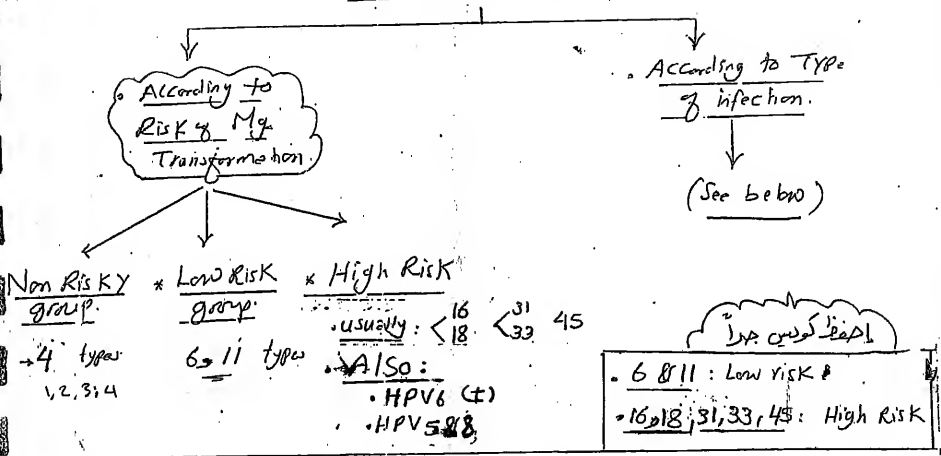 • According to
Risk of Mg
Transformation
• According to Type
of infection.
(See below)
Non Risky
group.
→ 4 types
1, 2, 3, 4
* Low Risk
group.
6, 11 types
* High Risk
• usually: < 16 18 < 31 33 45
• Also:
• HPV6 (±)
• HPV 5 & 8
احفظ كويس جداً
• 6 & 11 : Low risk
• 16, 18, 31, 33, 45 : High Risk